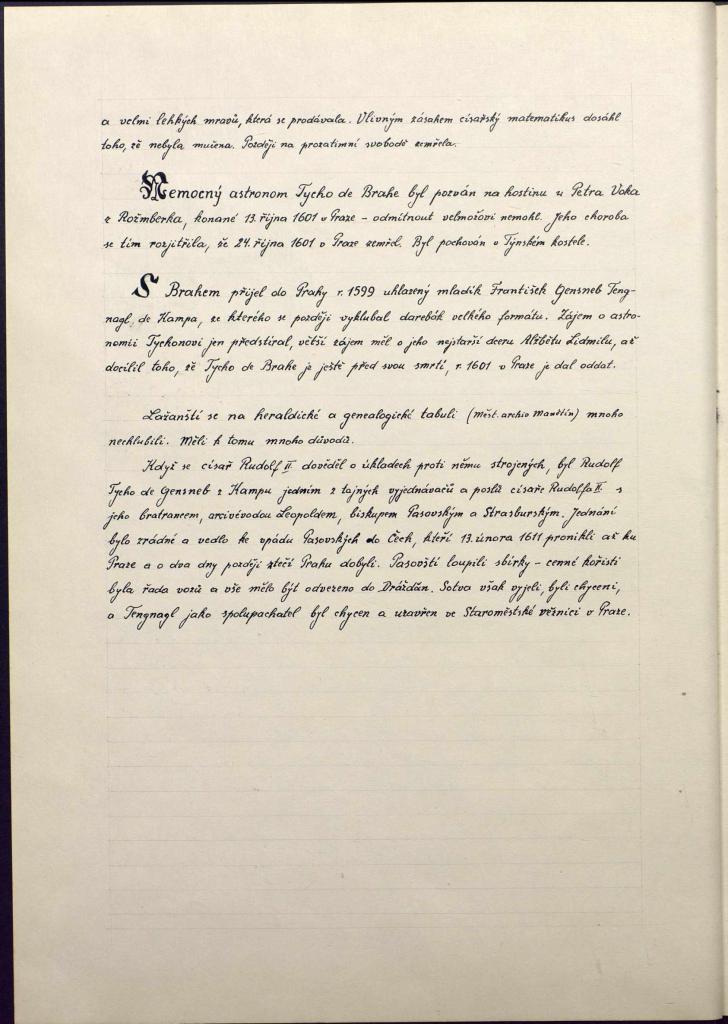 a velmi lehkých mravů, která se prodávala. Vlivným zásahem císařský matematikus dosáhl
toho, že nebyla mučena. Později na prozatimní svobodě zemřela.
Nemocný astronom Tycho de Brahe byl pozván na hostinu u Petra Voka
z Rožmberka, konané 13. října 1601 v Praze - odmítnout velmožovi nemohl. Jeho choroba
se tím rozjitřila, že 24. října 1601 v Praze zemřel. Byl pochován v Týnském kostele.
S Brahem přijel do Prahy r. 1599 uhlazený mladík František Gensneb Teng-
nagl de Kampa, ze kterého se později vyklubal darebák velkého formátu. Zájem o astro-
nomii Tychonovi jen předstíral, větší zájem měl o jeho nejstarší dceru Alžbětu Lidmilu, až
docílil toho, že Tycho de Brahe je ještě před svou smrtí, r. 1601 v Praze je dal oddat.
Lažanští se na heraldické a genealogické tabuli (Měst. archiv Manětín) mnoho
nechlubili. Měli k tomu mnoho důvodů.
Když se císař Rudolf II dověděl o úkladech proti němu strojených, byl Rudolf
Tycho de Gensneb z Kampu jedním z tajných vyjednávačů a poslů císaře Rudolfa II. s
jeho bratrancem, arcivévodou Leopoldem, biskupem Pasovským a Štrasburským. Jednání
bylo zrádné a vedlo ke vpádu Pasovských do Čech, kteří 13. února 1611 pronikli až ku
Praze a o dva dny později ztečí Prahu dobyli. Pasovští loupili sbírky - cenné kořisti
byla řada vozů a vše mělo být odvezeno do Drážďan. Sotva však vyjeli, byli chyceni,
a Tengnagl jako spolupachatel byl chycen a uzavřen ve Staroměstské věznici v Praze.